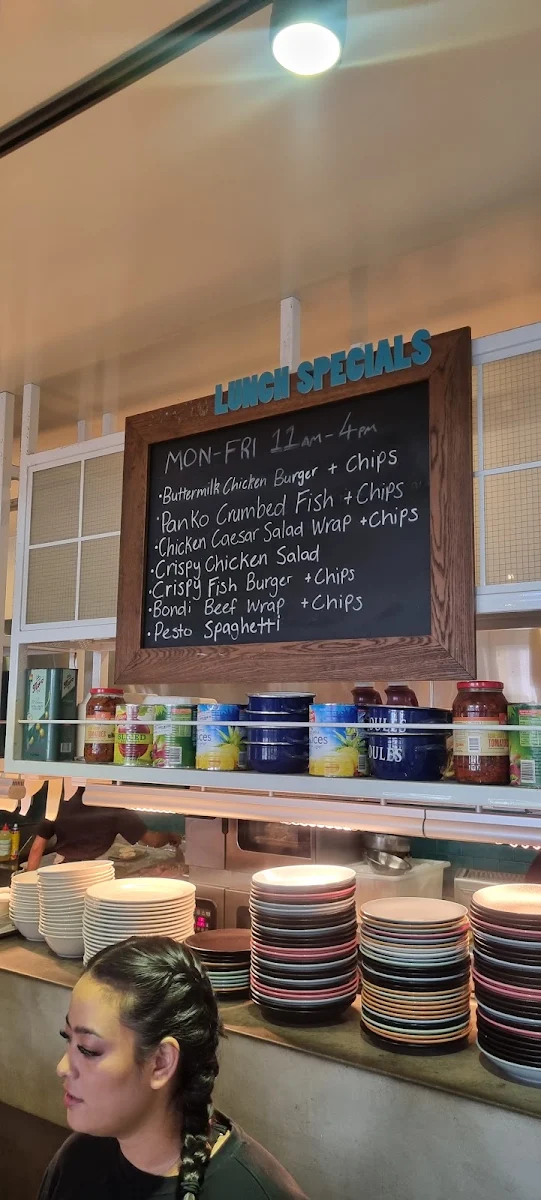 LUNCH SPECIALS
MON-FRI 11am-4pm
·Buttermilk Chicken Burger + Chips
·Panko Crumbed Fish + Chips
·Chicken Caesar Salad Wrap + Chips
·Crispy Chicken Salad
·Crispy Fish Burger + Chips
·Bondi Beef Wrap + Chips
·Pesto Spaghetti
OULES